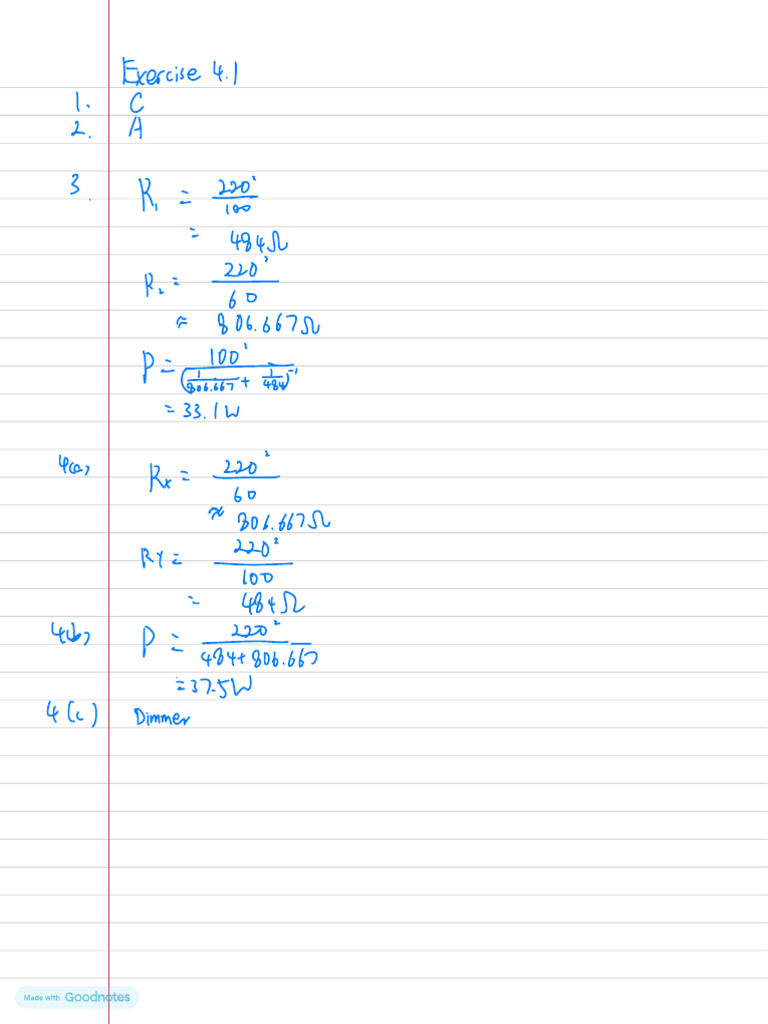 Exercise 4.1
1. C
2. A
3. R₁ = 220²/100
= 484Ω
R₂ = 220²/60
≈ 806.667Ω
P = 100²/(1/806.667 + 1/484)⁻¹
= 33.1W
4(a) Rx = 220²/60
≈ 806.667Ω
RY = 220²/100
= 484Ω
4(b) P = 220²/484+806.667
= 37.5W
4(c) Dimmer
Made with Goodnotes